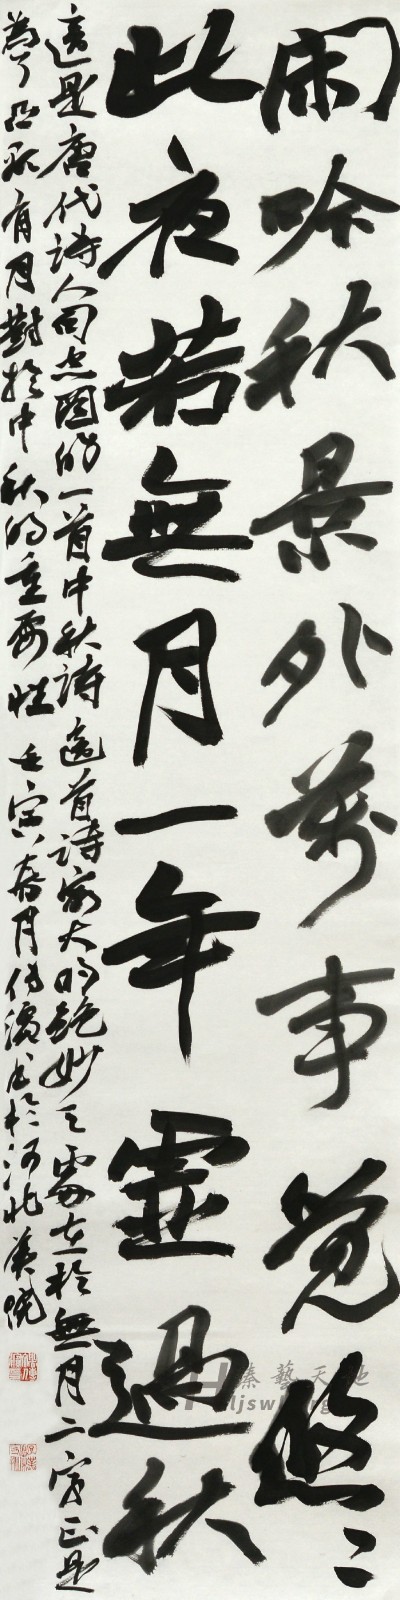 閑吟秋景外萬事覺悠〻
此夜若無月一年虛過秋
這是唐代詩人司空圖的一首中秋詩這首詩最大的絕妙之處在於無月二字正是
爲了有月對於中秋的重要性 壬寅春月偉濱書於河北美院
臻藝天地